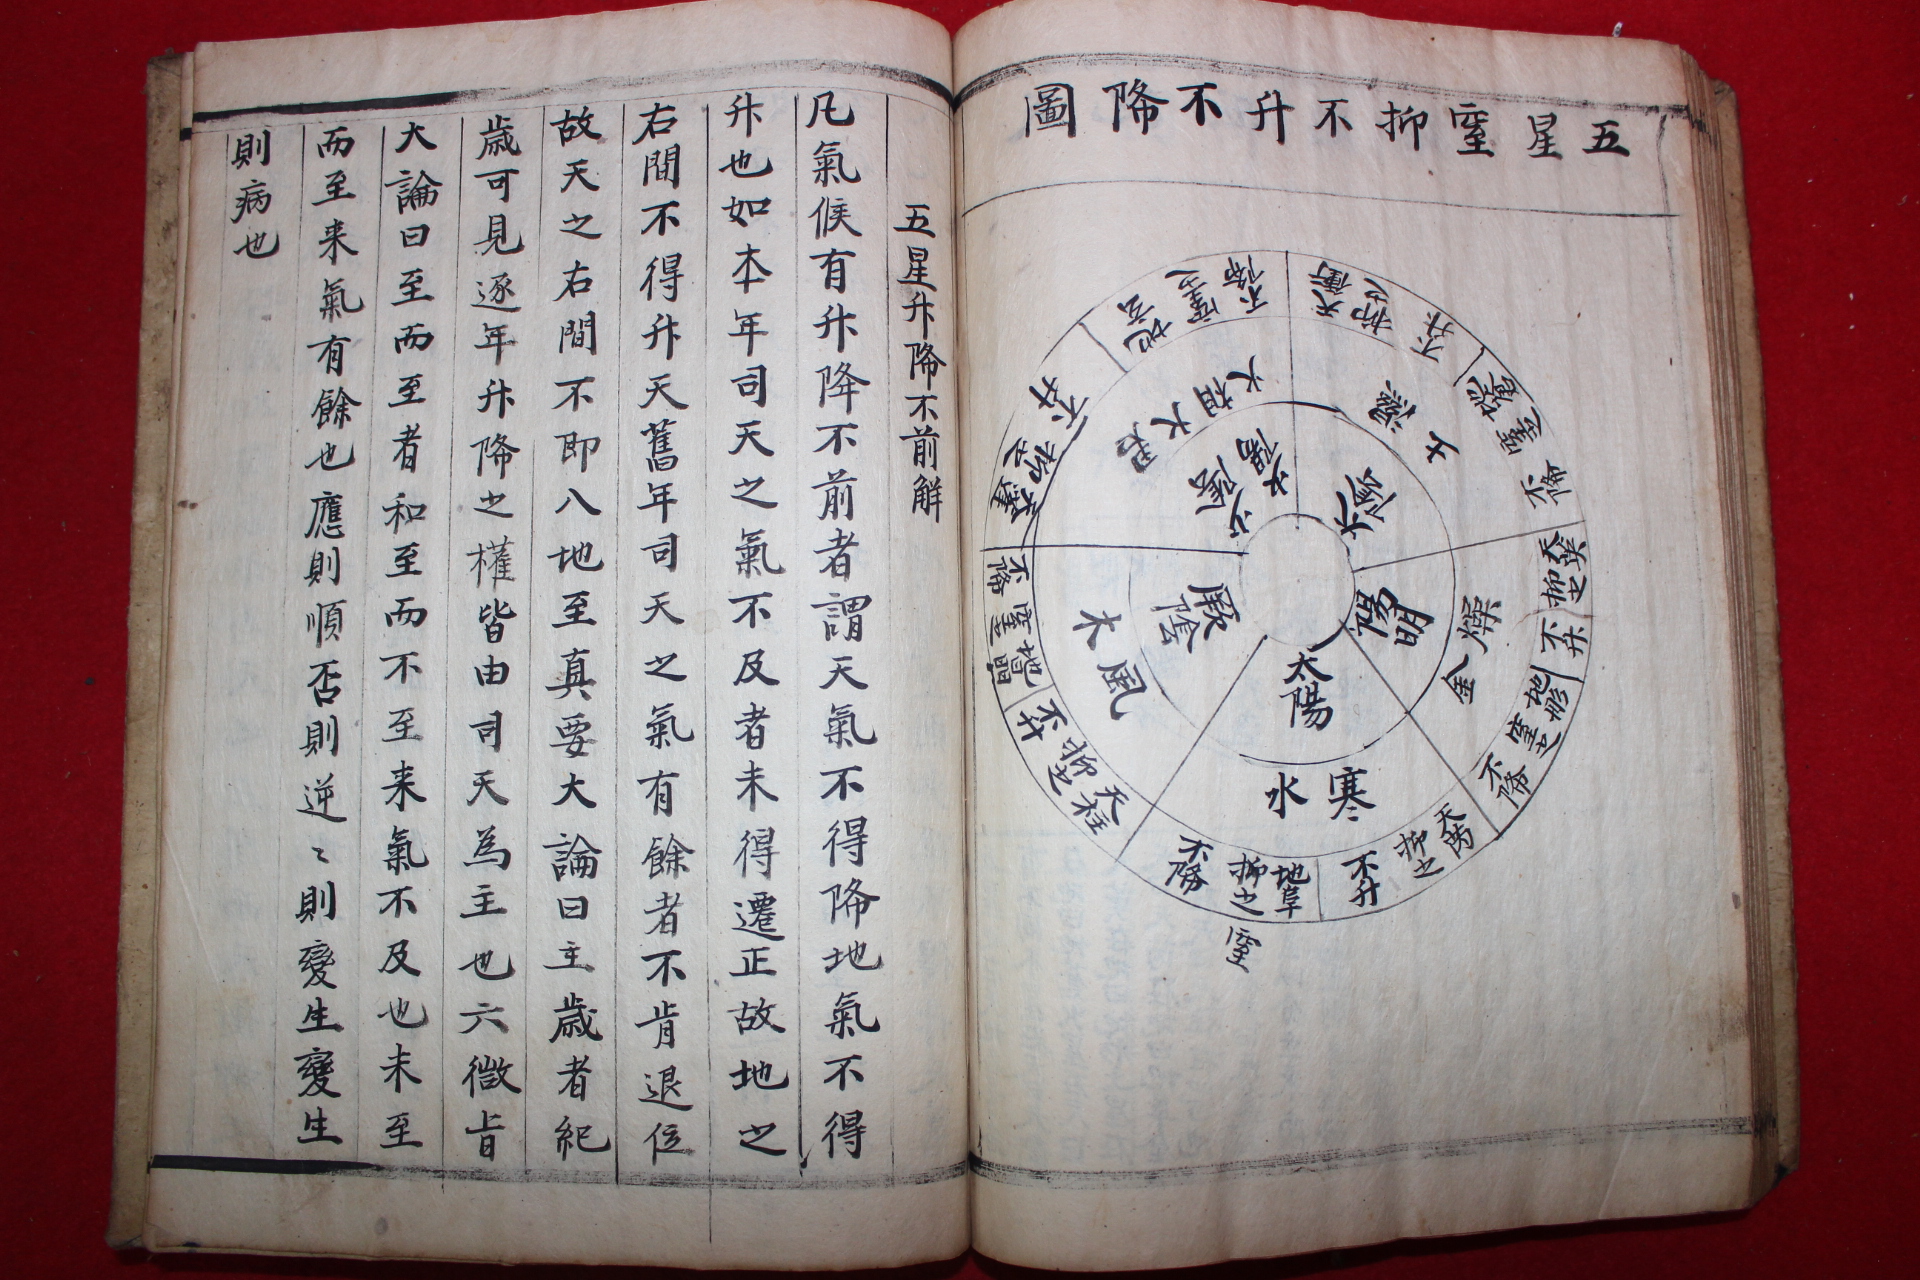 五星窒抑不升不降圖
天衝
抑之
不升
地蒼
窒之
不降
土濕
太陰
天英
抑之
不升
地彤
窒之
不降
金燥
陽明
天芮
抑之
不升
地阜
抑之
窒
不降
寒水
太陽
天柱
抑之
不升
地皛
窒之
不降
風木
厥陰
天蓬
抑之
不升
地玄
窒之
不降
君火
相火
少陰
少陽
五星升降不前解
凡氣候有升降不前者謂天氣不得降地氣不得
升也如本年司天之氣不及者未得遷正故地之
右間不得升天舊年司天之氣有餘者不肯退位
故天之右間不即入地至真要大論曰主歲者紀
歲可見逐年升降之權皆由司天為主也六微旨
大論曰至而至者和至而不至来氣不及也未至
而至来氣有餘也應則順否則逆〻則變生變生
則病也